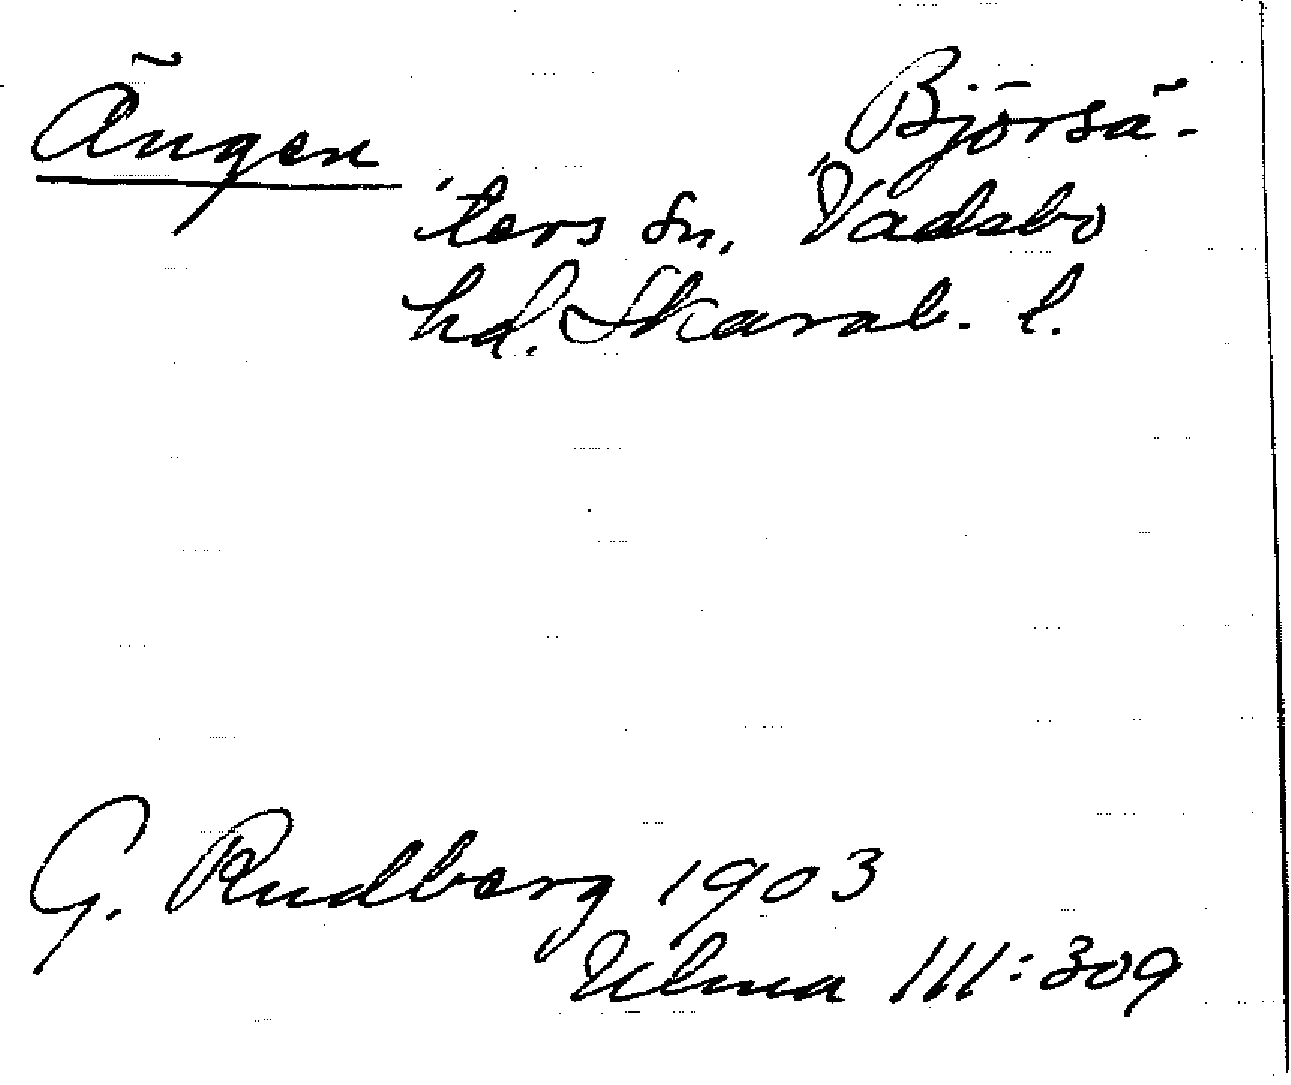 Ängen Björsä-
ters sn. Vadsbo
hd. Skarab. l.
G. Rudberg 1903
Ulma 111:309